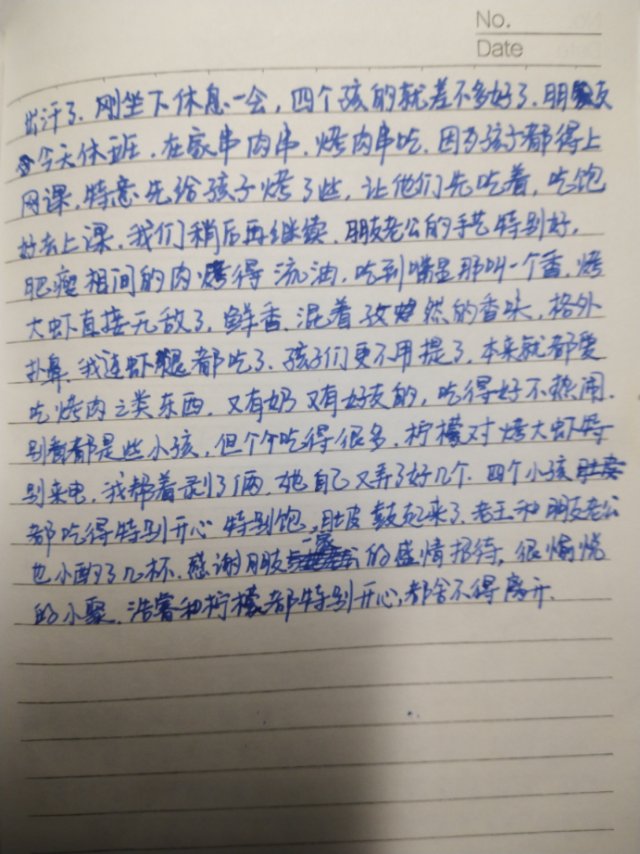 No.
Date
出汗了。刚坐下休息一会，四个孩的就差不多好了。朋友
今天休班，在家串肉串，烤肉串吃，因为孩子都得上
网课，特意先给孩子烤了些，让他们先吃着，吃饱
好去上课，我们稍后再继续。朋友老公的手艺特别好，
肥瘦相间的肉烤得流油，吃到嘴里那叫一个香，烤
大虾直接无敌了，鲜香，混着孜然的香味，格外
扑鼻。我连虾腿都吃了。孩子们更不用提了，本来就都爱
吃烤肉之类东西，又有奶又有好友的，吃得好不热闹。
别看都是些小孩，但个个吃得很多，柠檬对烤大虾特
别来电，我帮着剥了俩，她自己又弄了好几个。四个小孩
都吃得特别开心特别饱，肚皮鼓起来了。老王和朋友老公
也小酌了几杯。感谢朋友一家的盛情招待，很愉悦
的小聚。浩睿和柠檬都特别开心，都舍不得离开。